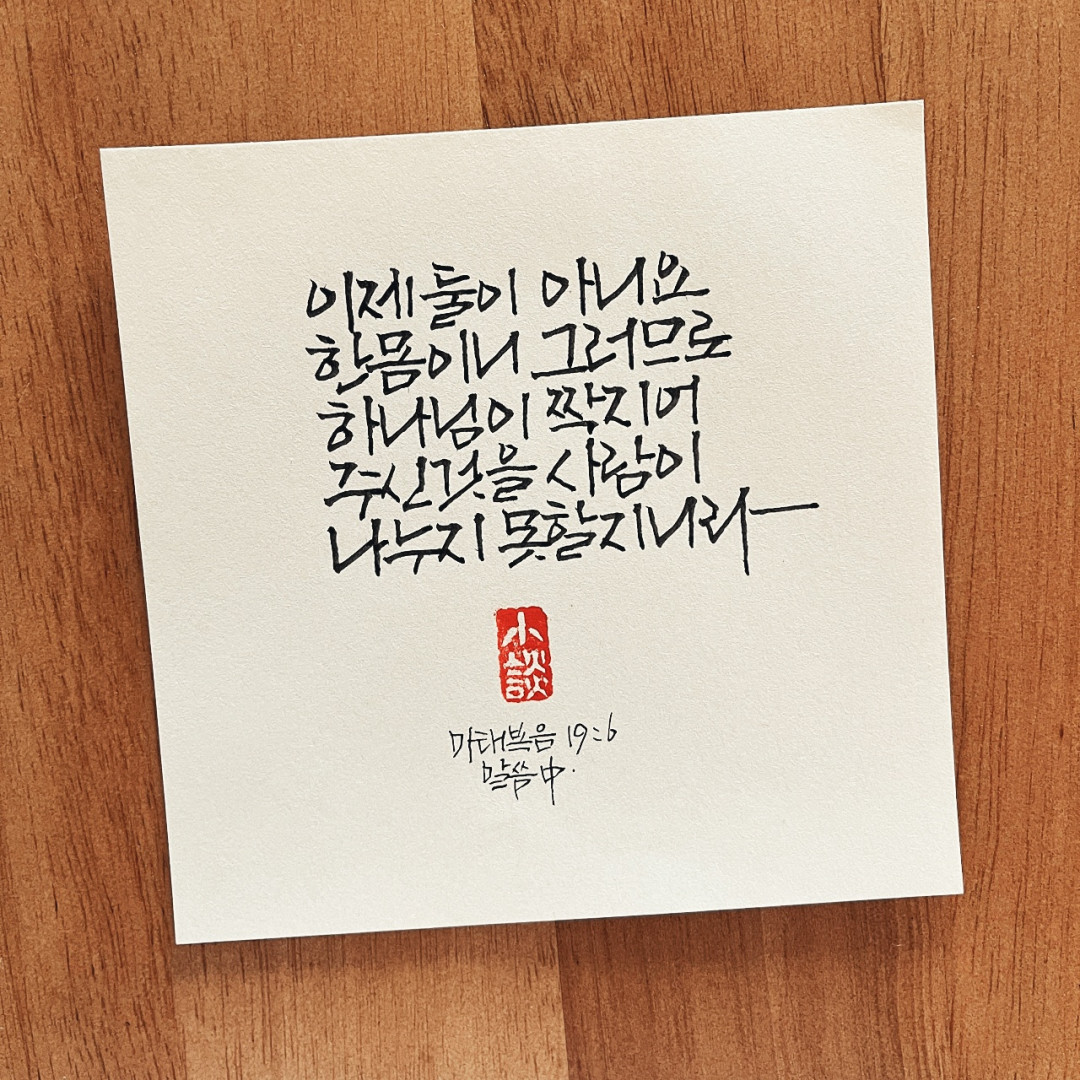 이제 둘이 아니요
한몸이니 그러므로
하나님이 짝지어
주신것을 사람이
나누지 못할지니라
小談
마태복음 19:6
말씀中.